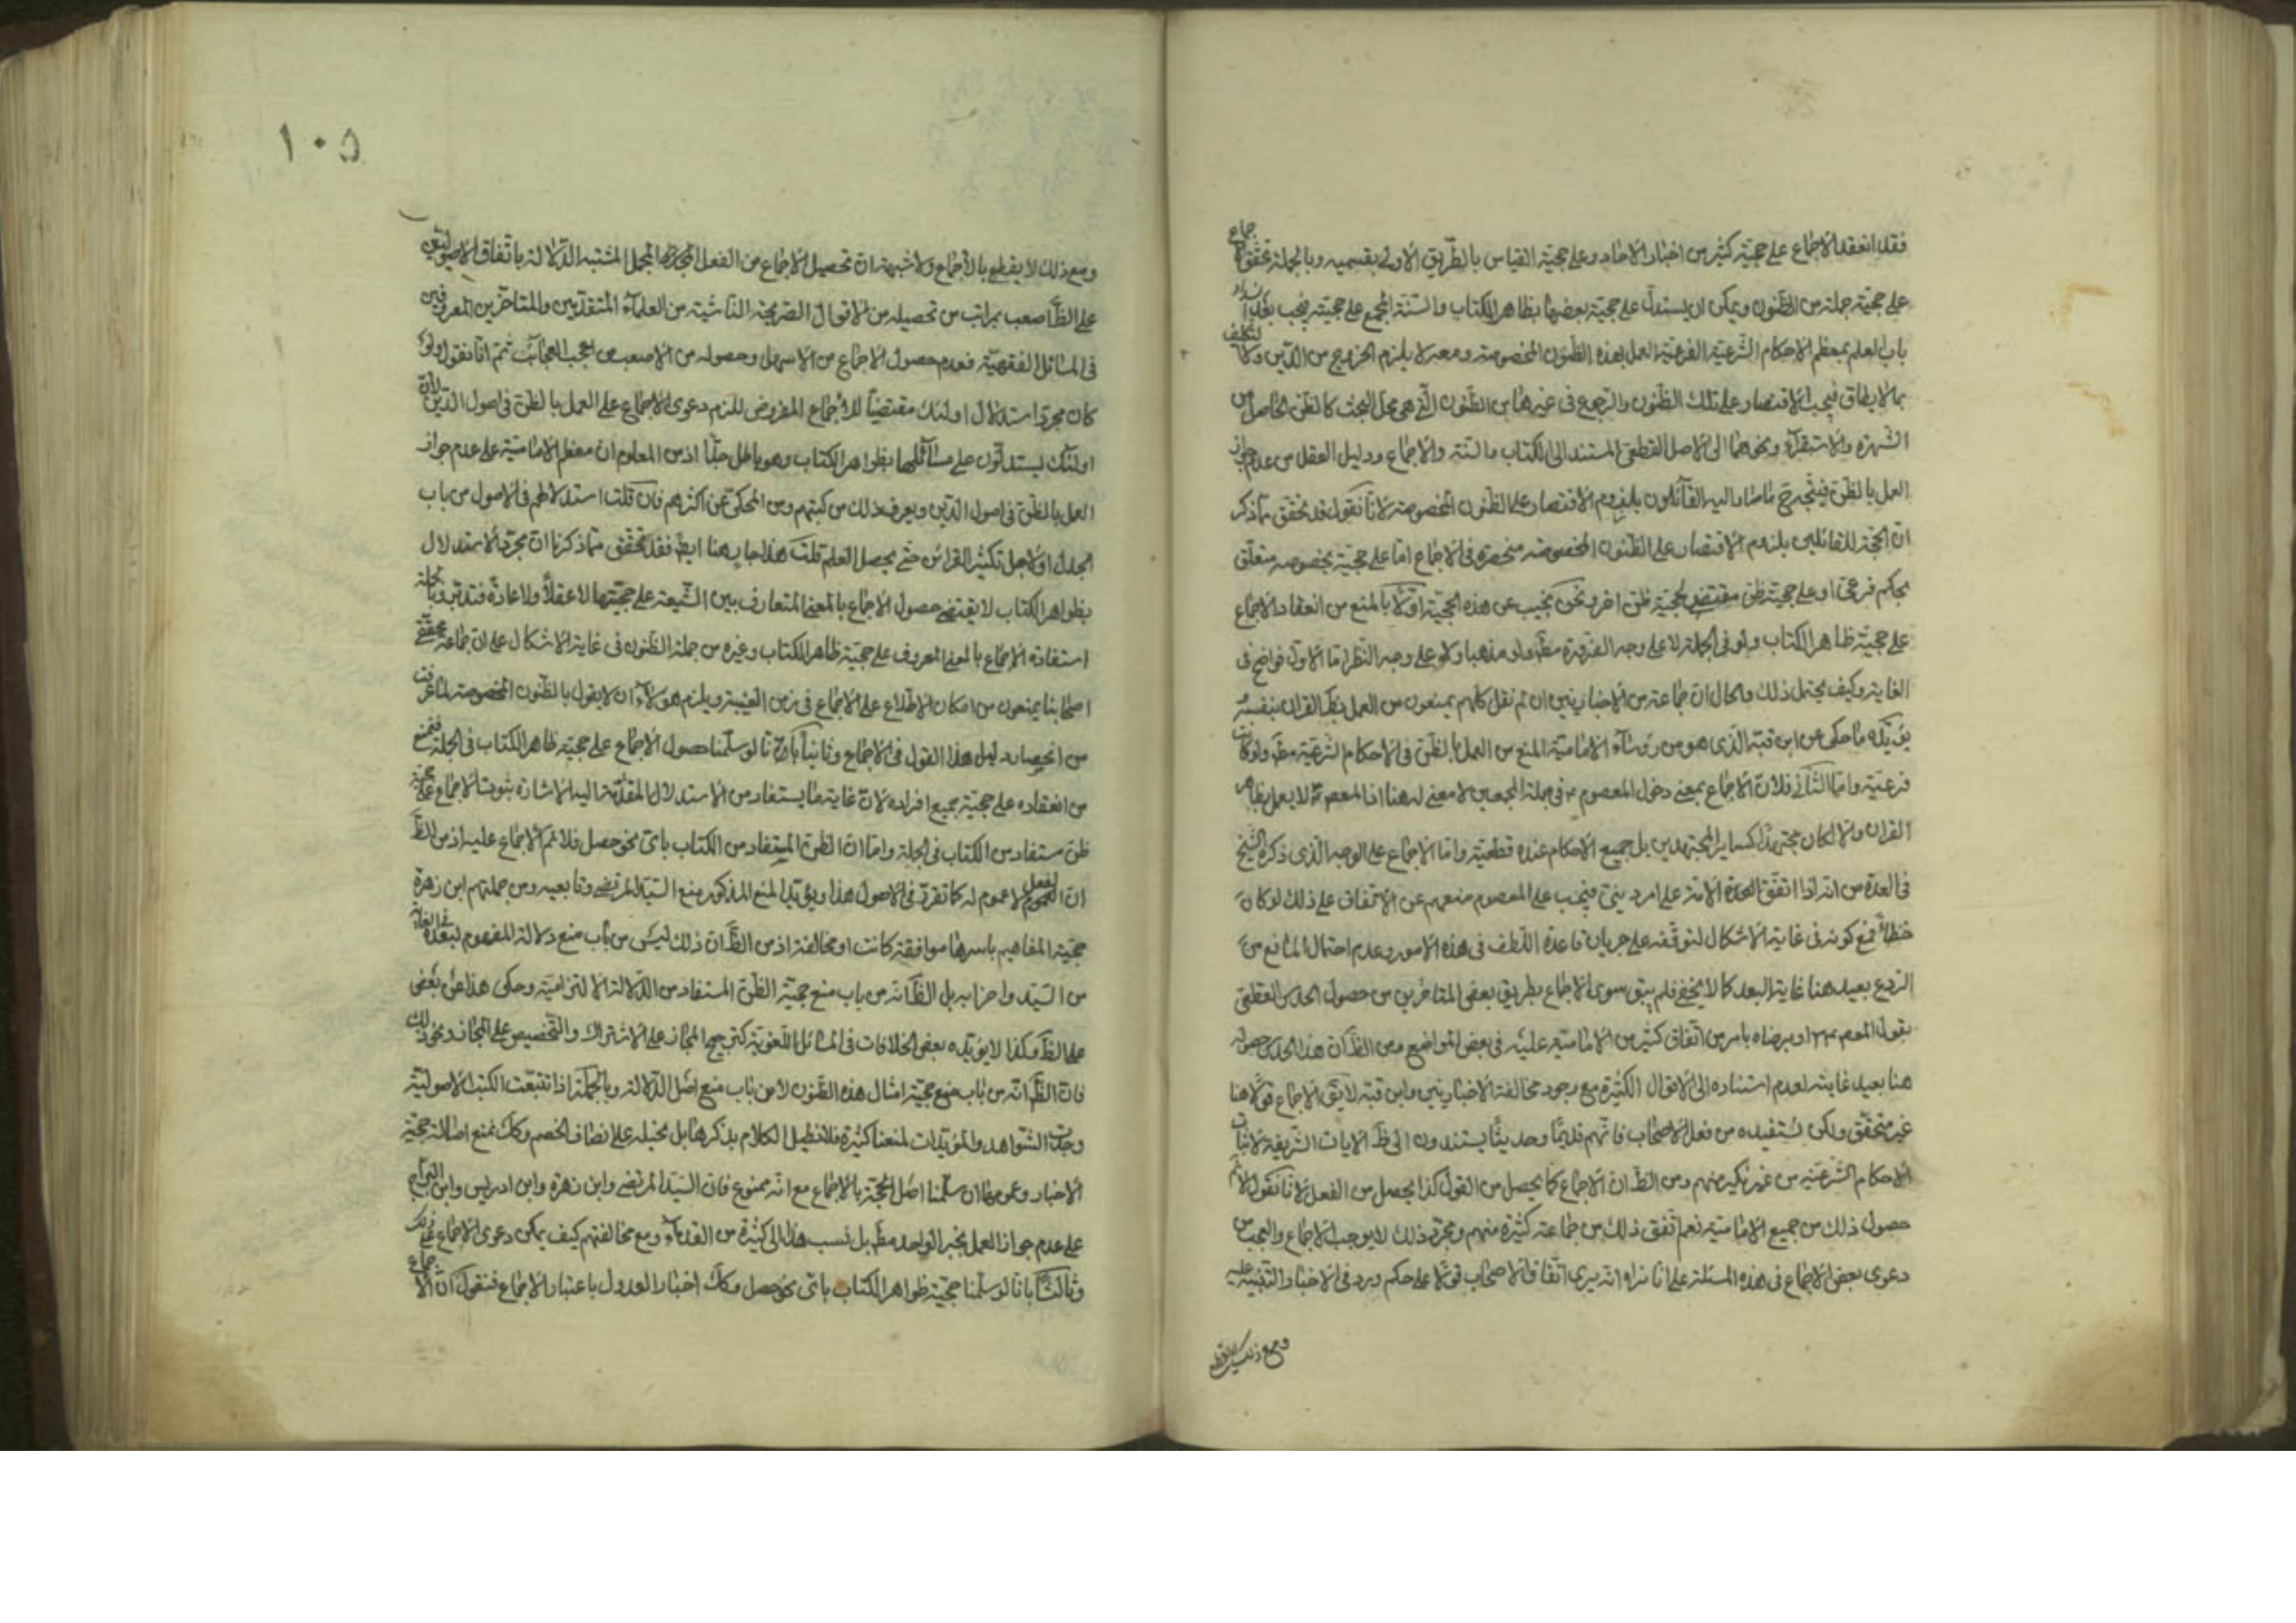 فقد انعقد الاجماع على حجيّة كثير من اخبار الاحاد وعلى حجيّة القياس بالطّريق الاولى بقسميه وبالجملة تحقّق الاجماع
على حجيّة جملة من الظّنون ويمكن ان يستدلّ على حجيّة بعضها بظاهر الكتاب والسّنة المجمع على حجيّته فيجب بعد انسداد
باب العلم بمعظم الاحكام الشّرعيّة الفرعيّة العمل بهذه الظّنون المخصوصة ومعه لا يلزم الخروج من الدّين ولا التكليف
بما لا يطاق فيجب الاقتصار على تلك الظّنون والرّجوع في غيرها من الظّنون الّتي هي محلّ البحث كالظنّ الحاصل من
الشّهرة والاستقراء ونحوهما الى الاصل القطعيّ المستند الى الكتاب والسّنة والاجماع ودليل العقل من عدم جواز
العمل بالظّنّ فيتّجه ح ما صار اليه القآئلون بلزوم الاقتصار على الظّنون المخصوصة لانّا نقول قد تحقّق ممّا ذكر
انّ الحجّة للقائلين بلزوم الاقتصار على الظّنون المخصوصة منحصرة في الاجماع امّا على حجيّته بخصوصه متعلّق
بحكم فرعيّ او على حجيّة ظنّ مقتض لحجيّة ظنّ اخر ونحن نجيب عن هذه الحجّية اوّلاً بالمنع من انعقاد الاجماع
على حجيّة ظاهر الكتاب ولو في الجملة لا على وجه الضّرورة مط ولو مذهبا ولا على وجه النّظر امّا الاوّل فواضح في
الغاية وكيف يحتمل ذلك والحال انّ جماعة من الاخباريين ان لم نقل كلّهم يمنعون من العمل بظ القران بنفسه
يؤيّده ما حكى عن ابن قبة الّذي هو من رؤسآء الاماميّة المنع من العمل بالظّنّ في الاحكام الشّرعيّة مط ولو كانت
فرعيّة وامّا الثّاني فلانّ الاجماع بمعنى دخول المعصوم ع في جملة المجمعين لا معنى له هنا اذ المعصوم ع لا يعمل بظاهر
القران والا لكان مجتهدًا كساير المجتهدين بل جميع الاحكام عنده قطعيّة وامّا الاجماع على الوجه الّذي ذكره الشّيخ
في العدة من انّه اذا اتفقت الامّة على امر دينيّ فيجب على المعصوم منعهم عن الاتّفاق على ذلك لو كان
خطأً فمع كونه في غاية الاشكال لتوقّفه على جريان قاعدة اللّطف في هذه الامور وعدم احتمال المانع من
الرّدع بعيد هنا غاية البعد كما لا يخفى فلم يبق سوى الاجماع بطريق بعض المتاخّرين من حصول الحدس القطعيّ
بقول المعصوم ع او برضاه بامر من اتّفاق كثير من الاماميّة عليه في بعض المواضع ومن الظّ ان هذا الحدس حصوله
هنا بعيد غايته لعدم استناده الى الاقوال الكثيرة مع وجود مخالفة الاخباريين وابن قبة لا يق الاجماع قولا هنا
غير متحقّق ولكن نستفيده من فعل الاصحاب فانّهم قديمًا وحديثًا يستندون الى ظ الايات الشّريفة لاثبات
الاحكام الشّرعيّة من غير نكير منهم ومن الظّ ان الاجماع كما يحصل من القول كذا يحصل من الفعل لانّا نقول لا نم
حصول ذلك من جميع الاماميّة نعم اتّفق ذلك من جماعة كثيرة منهم ومجرّد ذلك لا يوجب الاجماع والعجب من
دعوى بعض الاجماع في هذه المسئلة على انّا نراه انّه يرى اتّفاق الاصحاب قولا على حكم ويرد في الاخبار التنبيه عليه
ومع ذلك لا يقطع
١٠٥
ومع ذلك لا يقطع بالاجماع ولا شبهة انّ تحصيل الاجماع من الفعل المجمل المشتبه الدّلالة باتّفاق الاصوليّين
على الظّ اصعب بمراتب من تحصيله من الاقوال الصّريحة النّاشئة من العلمآء المتقدّمين والمتاخّرين المعروفين
في المسائل الفقهيّة فعدم حصول الاجماع من الاسهل وحصوله من الاصعب من اعجب العجائب ثمّ انّا نقول لو
كان مجرّد استدلال اولئك مقتضياً للاجماع المفروض للزم دعوى الاجماع على العمل بالظنّ في اصول الدّين لانّ
اولئك يستدلّون على مسآئلها بظواهر الكتاب وهو باطل جدّا اذ من المعلوم انّ معظم الاماميّة على عدم جواز
العمل بالظّنّ في اصول الدّين ويعرف ذلك من كتبهم ومن المحكيّ عن اكثرهم فان قلت استدلالهم في الاصول من باب
الجدل او لاجل تكثير القرائن حتّى يحصل العلم قلت هذا جار هنا ايض فقد تحقّق ممّا ذكرنا انّ مجرّد الاستدلال
بظواهر الكتاب لا يقتضي حصول الاجماع بالمعنى المتعارف بين الشّيعة على حجّيتها لا عقلاً ولا عادةً فتدبّر وبالجملة
استفادة الاجماع بالمعنى المعروف على حجيّة ظاهر الكتاب وغيره من جملة الظّنون في غاية الاشكال على انّ جماعة من محقّقي
اصحابنا يمنعون من امكان الاطّلاع على الاجماع في زمن الغيبة ويلزم هؤلآء ان لا يقول بالظّنون المخصوصة لما عرفت
من انحصار دليل هذا القول في الاجماع وثانياً بانّا لو سلّمنا حصول الاجماع على حجيّة ظاهر الكتاب في الجملة فنمنع
من انعقاده على حجيّة جميع افراده لانّ غاية ما يستفاد من الاستدلال المقدّم اليه الاشارة ثبوت الاجماع على حجيّة
ظنّ مستفاد من الكتاب في الجملة وامّا انّ الظنّ المستفاد من الكتاب باىّ نحو حصل فلا نم الاجماع عليه اذ من الظّ
انّ الفعل لا عموم له كما تقرّر في الاصول هذا ويؤيّد المنع المذكور منع السّيّد المرتضى وتابعيه ومن جملتهم ابن زهرة
حجيّة المفاهيم باسرها موافقة كانت او مخالفة اذ من الظّ ان ذلك ليس من باب منع دلالة المفهوم لبعده في الغاية
من السّيّد واضرابه بل الظّ انّه من باب منع حجيّة الظّنّ المستفاد من الدّلالة الالتزاميّة وحكى هذا عن بعض
على الظّ وكذا لا يؤيّده بعض الخلافات في المسائل اللّغويّة كترجيح المجاز على الاشتراك والتّخصيص على المجاز ونحو ذلك
فان الظّ انّه من باب منع حجيّة امثال هذه الظّنون لا من باب منع اصل الدّلالة وبالجملة اذا تتبّعت الكتب الاصوليّة
وجدت الشّواهد والمؤيّدات لمنعنا كثيرة فلا نطيل الكلام بذكرها بل نحيله على انصاف الخصم وكك نمنع اصالة حجيّة
الاخبار وعمومها ان سلّمنا اصل الحجّية بالاجماع مع انّه ممنوع فان السّيّد المرتضى وابن زهرة وابن ادريس وابن البرّاج
على عدم جواز العمل بخبر الواحد مط بل نسب هذا الى كثيرة من القدمآء ومع مخالفتهم كيف يمكن دعوى الاجماع على ذلك
وثالثًا بانّا لو سلّمنا حجيّة ظواهر الكتاب باىّ نحو حصل وكك اخبار العدول باعتبار الاجماع فنقول انّ الاجماع